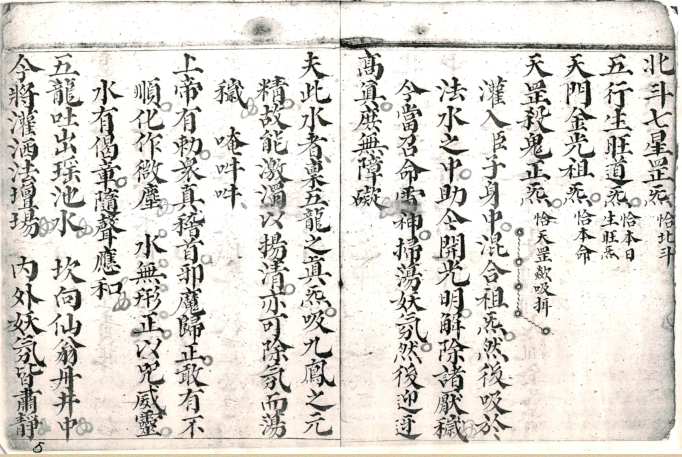 北斗七星罡炁 恰北斗
五行生旺道炁 恰本日生旺炁
天門金光祖炁 恰本命
天罡殺鬼正炁 恰天罡歘吸揖
灌入臣子身中混合祖炁然後吸於
法水之中助令開光明解除諸厭穢
今當召命雷神掃蕩妖氛然後迎迓
高真庶無障礙
夫此水者稟五龍之真炁吸九鳳之元
精故能激濁以揚清亦可除氛而蕩
穢 唵吽吽
上帝有勅衆真稽首邪魔歸正敢有不
順化作微塵 水無形正以咒威靈
水有偈章隨聲應和
五龍吐出瑶池水 坎向仙翁丹井中
今將灌洒法壇場 内外妖氛皆肅靜
5